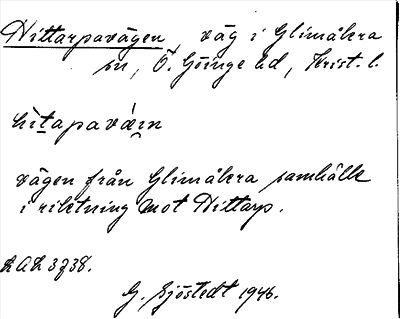 Hittarpavägen väg i Glimåkra
sn, Ö. Göinge hd, Krist. l.
hìtapavä́i̯n
vägen från Glimåkra samhälle
i riktning mot Hittarp.
LAL 3738.
G. Sjöstedt 1946.